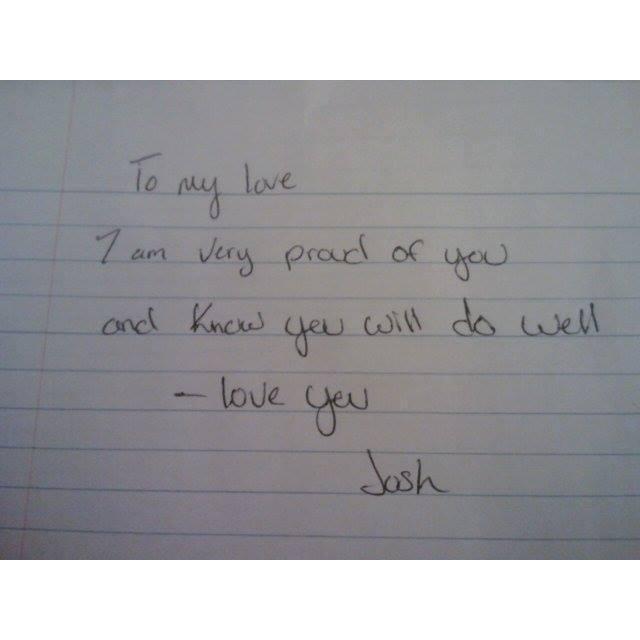 To my love
I am very proud of you
and know you will do well
- love you
Josh